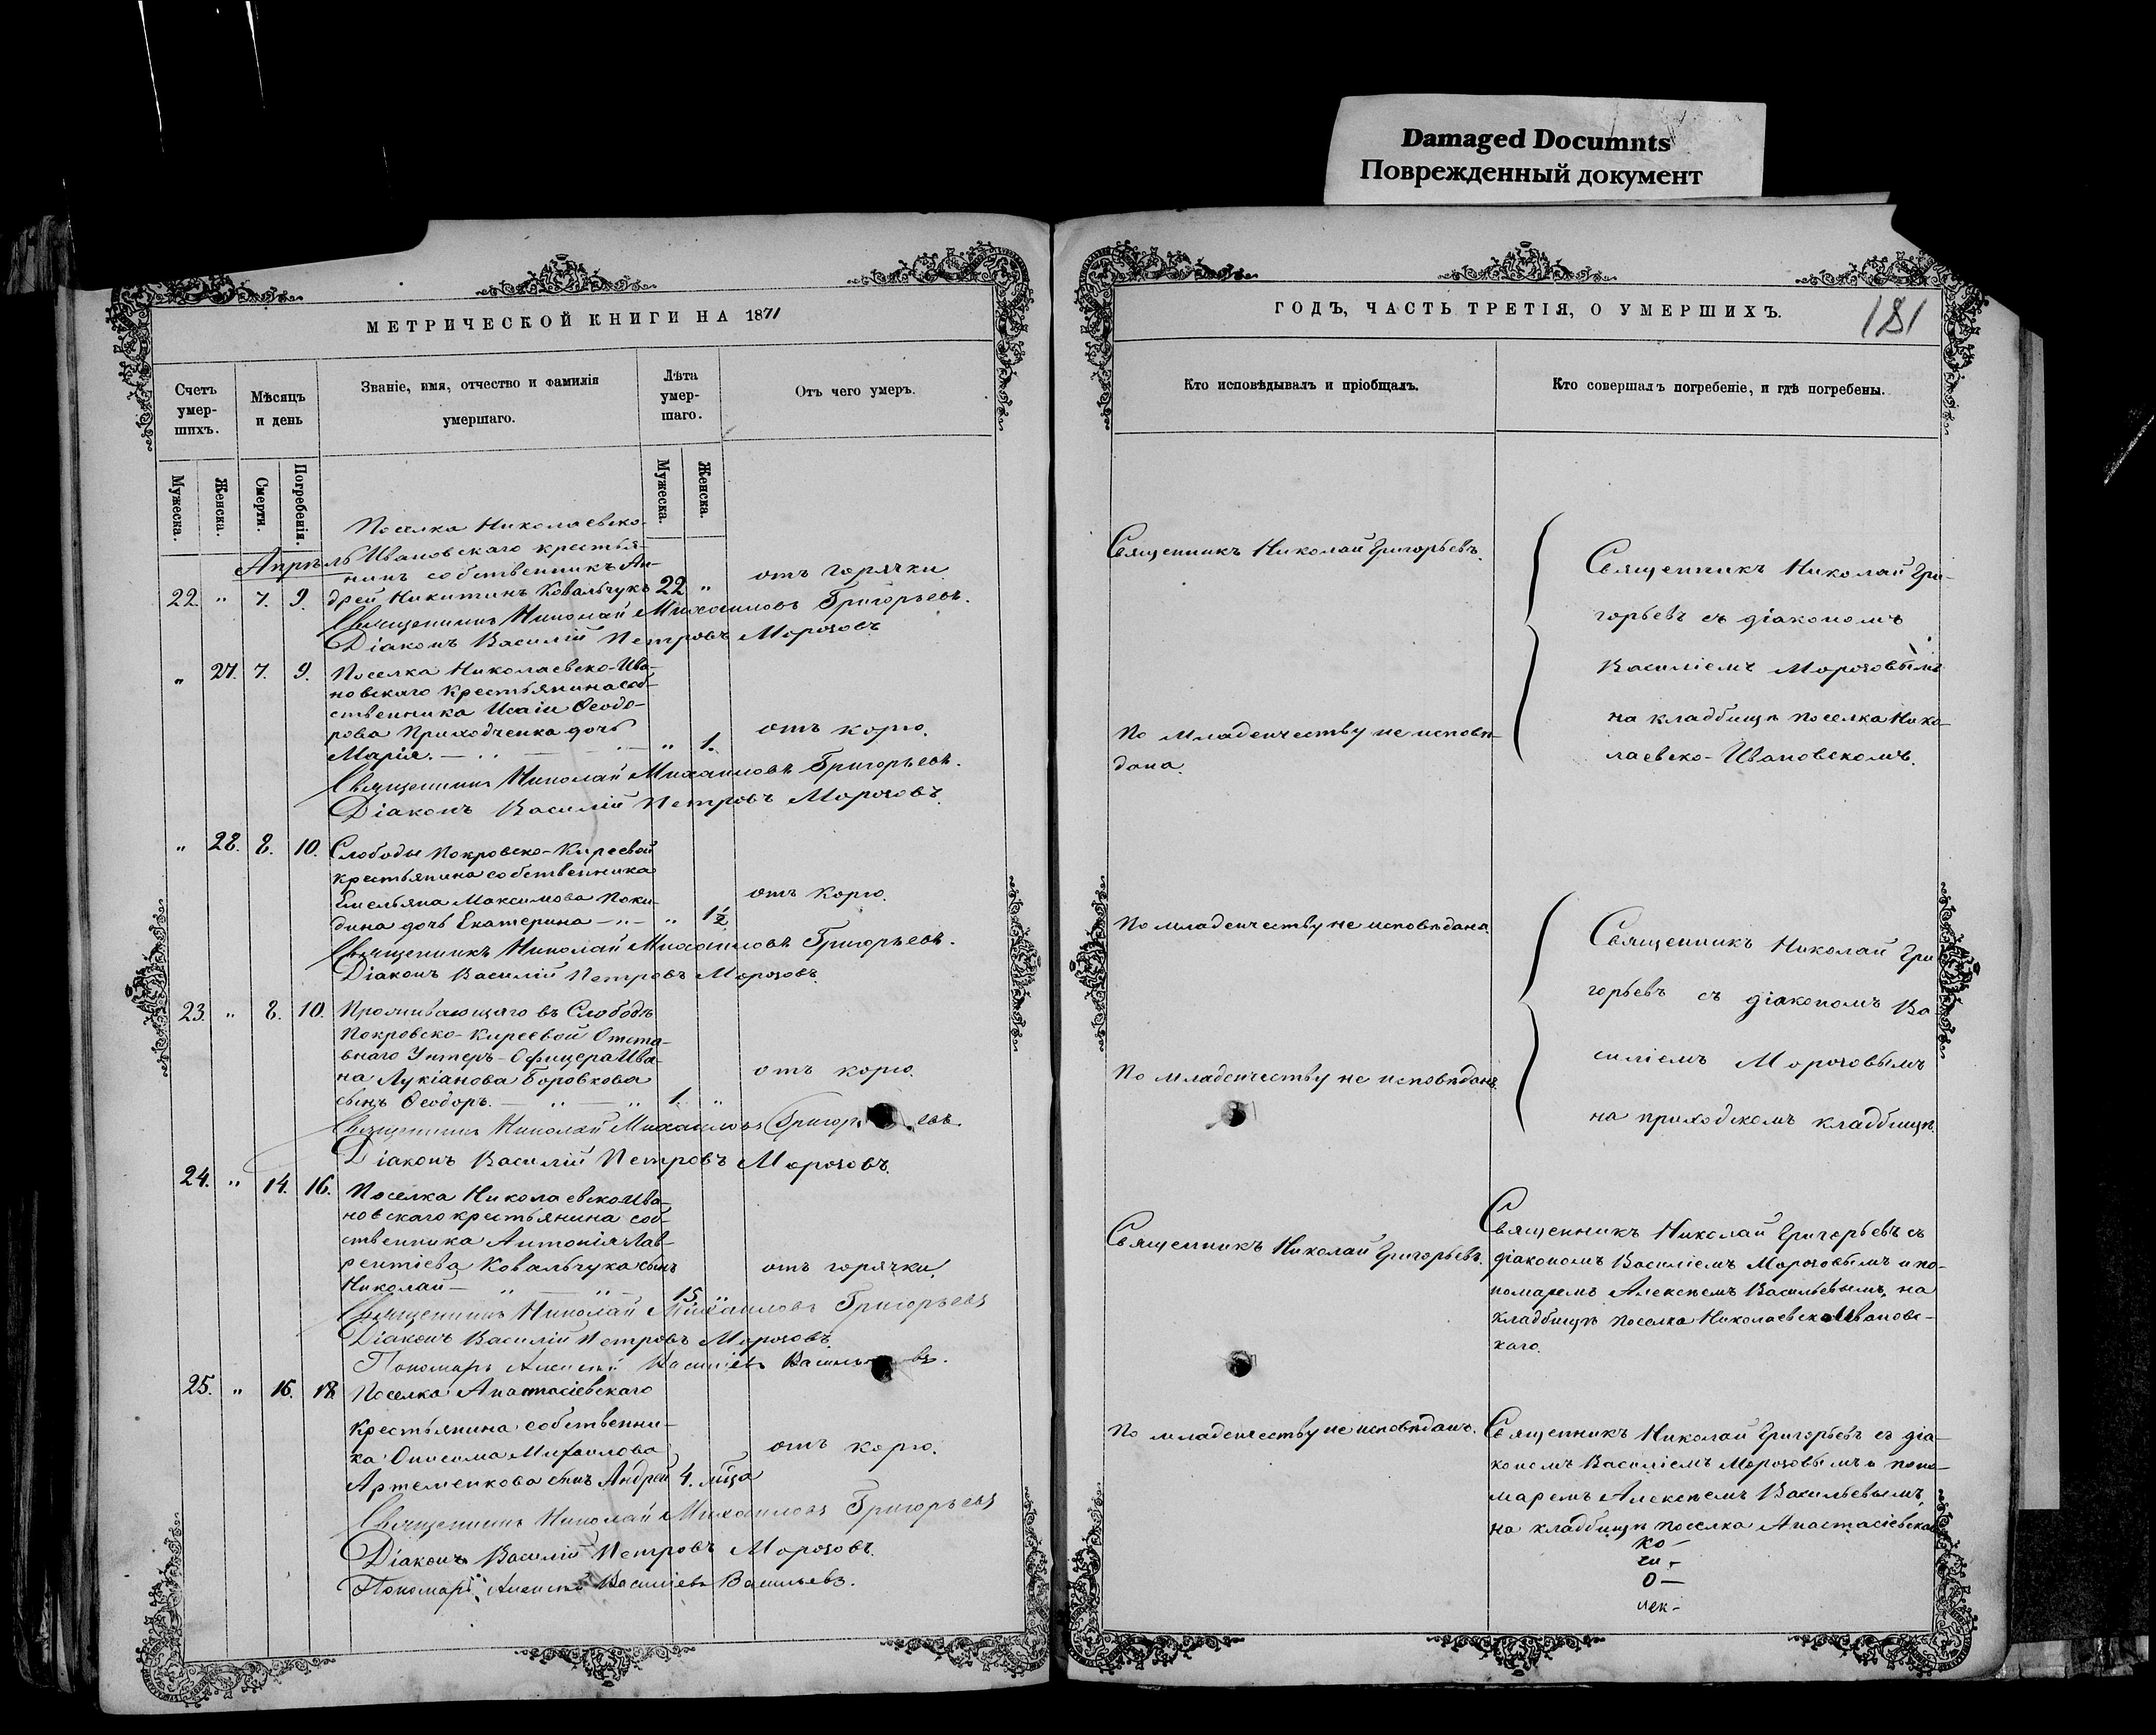 Damaged Documnts
Поврежденный документ
МЕТРИЧЕСКОЙ КНИГИ НА 1871
Счетъ умершихъ.
Мѣсяцъ и день
Званіе, имя, отчество и фамилія умершаго.
Лѣта умершаго.
Отъ чего умеръ.
Мужеска.
Женска.
Смерти.
Погребенія.
Мужеска.
Женска.
Апрѣль
Поселка Николаевско-
Ивановскаго крестья-
нинъ собственникъ Ан-
22. " 7. 9. дрей Никитинъ Ковальчукъ 22 " отъ горячки
Священникъ Николай Михаиловъ Григорьевъ.
Діаконъ Василій Петровъ Морозовъ.
" 27. 7. 9. Поселка Николаевско-Ива-
новскаго крестьянина соб-
ственника Исаіи Ѳеодо-
рова Приходченка дочь
Марія. " 1. отъ корю.
Священникъ Николай Михаиловъ Григорьевъ.
Діаконъ Василій Петровъ Морозовъ.
" 28. 8. 10. Слободы Покровско-Киреевой
крестьянина собственника
Емельяна Максимова Поки-
дина дочь Екатерина " 1½ отъ корю.
Священникъ Николай Михаиловъ Григорьевъ.
Діаконъ Василій Петровъ Морозовъ.
23. " 8. 10. Проживающаго въ Слободѣ
Покровско-Киреевой Отста-
внаго Унтеръ-Офицера Ива-
на Лукіанова Боровкова
сынъ Ѳеодоръ. 1. " отъ корю.
Священникъ Николай Михаиловъ Григорьевъ.
Діаконъ Василій Петровъ Морозовъ.
24. " 14. 16. Поселка Николаевско Ива-
новскаго крестьянина соб-
ственника Антонія Лав-
рентіева Ковальчука сынъ
Николай 15. " отъ горячки.
Священникъ Николай Михаиловъ Григорьевъ
Діаконъ Василій Петровъ Морозовъ.
Пономарь Алексѣй Васильевъ.
25. " 16. 18. Поселка Анастасіевскаго
крестьянина собственни-
ка Онисима Михаилова
Артеменкова сынъ Андрей 4. мѣца отъ корю.
Священникъ Николай Михаиловъ Григорьевъ
Діаконъ Василій Петровъ Морозовъ.
Пономарь Васильевъ.
ГОДЪ, ЧАСТЬ ТРЕТІЯ, О УМЕРШИХЪ.
181
Кто исповѣдывалъ и пріобщалъ.
Кто совершалъ погребеніе, и гдѣ погребены.
Священникъ Николай Григорьевъ.
По младенчеству не исповѣ-
дана.
Священникъ Николай Гри-
горьевъ съ діакономъ
Василіемъ Морозовымъ
на кладбищѣ поселка Нико-
лаевско-Ивановскомъ.
По младенчеству не исповѣдана.
По младенчеству не исповѣданъ.
Священникъ Николай Гри
горьевъ съ діакономъ Ва-
силіемъ Морозовымъ
на приходскомъ кладбищѣ.
Священникъ Николай Григорьевъ.
Священникъ Николай Григорьевъ съ
діакономъ Василіемъ Морозовымъ и по-
номаремъ Алексѣемъ Васильевымъ, на
кладбищѣ поселка Николаевско Ивановс-
каго.
По младенчеству не исповѣданъ.
Священникъ Николай Григорьевъ съ діа-
кономъ Василіемъ Морозовымъ и поно-
маремъ Алексѣемъ Васильевымъ,
на кладбищѣ поселка Анастасіевска
ко-
ги-
О-